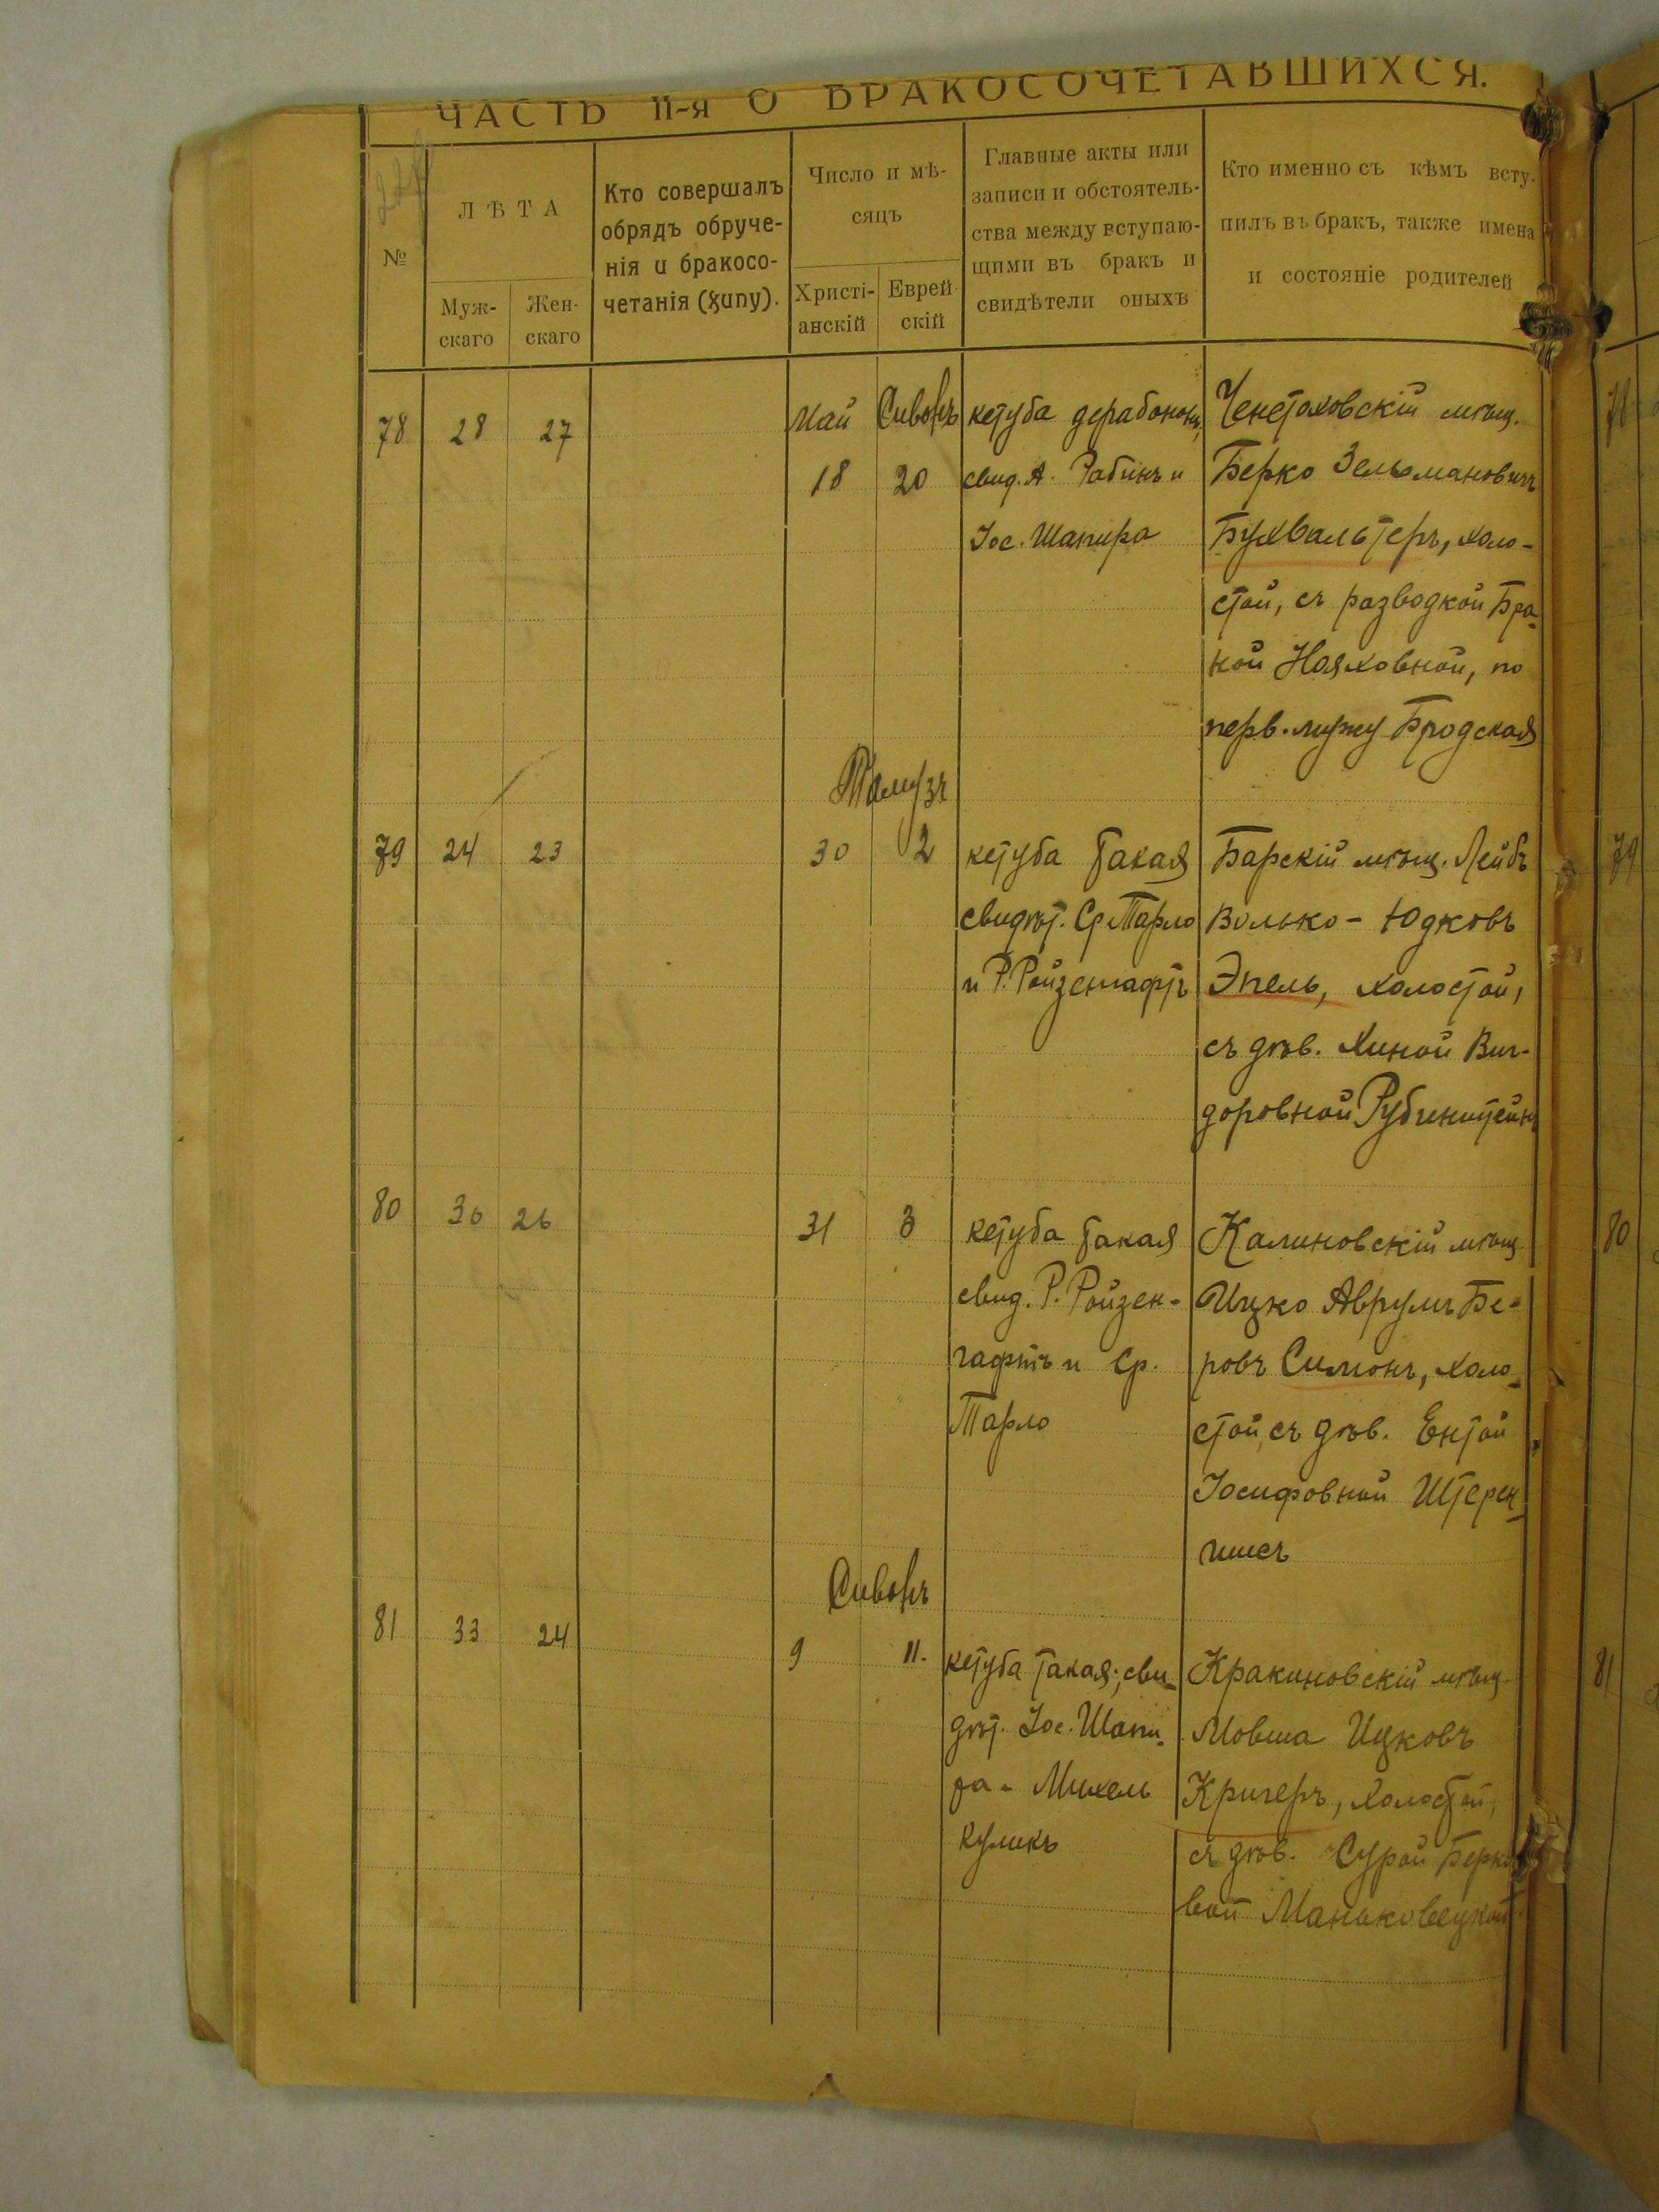 ЧАСТЬ II-я О БРАКОСОЧЕТАВШИХСЯ.
№
ЛѢТА
Муж-
скаго
Жен-
скаго
Кто совершалъ
обрядъ обруче-
нія и бракосо-
четанія (хупу).
Число и мѣ-
сяцъ
Христі-
анскій
Еврей-
скій
Главные акты или
записи и обстоятель-
ства между вступаю-
щими въ бракъ и
свидѣтели оныхъ
Кто именно съ кѣмъ всту-
пилъ въ бракъ, также имена
и состояніе родителей
78 28 27
Май Сивонъ
18 20
кетуба дерабонон,
свид. А. Рабинъ и
Іос. Шапира
Ченстоховскій мѣщ.
Берко Зельмановичъ
Бухвальтеръ, холо-
стой, съ разводкой Бра-
ной Нояховной, по
перв. мужу Бродская
Тамузъ
79 24 23
30 2
кетуба такая
свидѣт. Ср. Тарло
и Р. Ройзенгафтъ
Барскій мѣщ. Лейбъ
Волько-Юдковъ
Эпель, холостой,
съ дѣв. Хиной Виг-
доровной Рубинштейнъ
80 30 26
31 3
кетуба такая
свид. Р. Ройзен-
гафтъ и Ср.
Тарло
Калиновскій мѣщ
Ицко Аврумъ Бе-
ровъ Симонъ, холо-
стой, съ дѣв. Ентой
Іосифовной Штерен-
шисъ
Сивонъ
81 33 24
9 11.
кетуба такая; сви-
дѣт. Іос. Шапи-
ра и Михель
Куликъ
Кракиновскій мѣщ.
Мовша Ицковъ
Кригеръ, холостой,
съ дѣв. Сурой Берко-
вой Маньковецкой
78
79
80
81